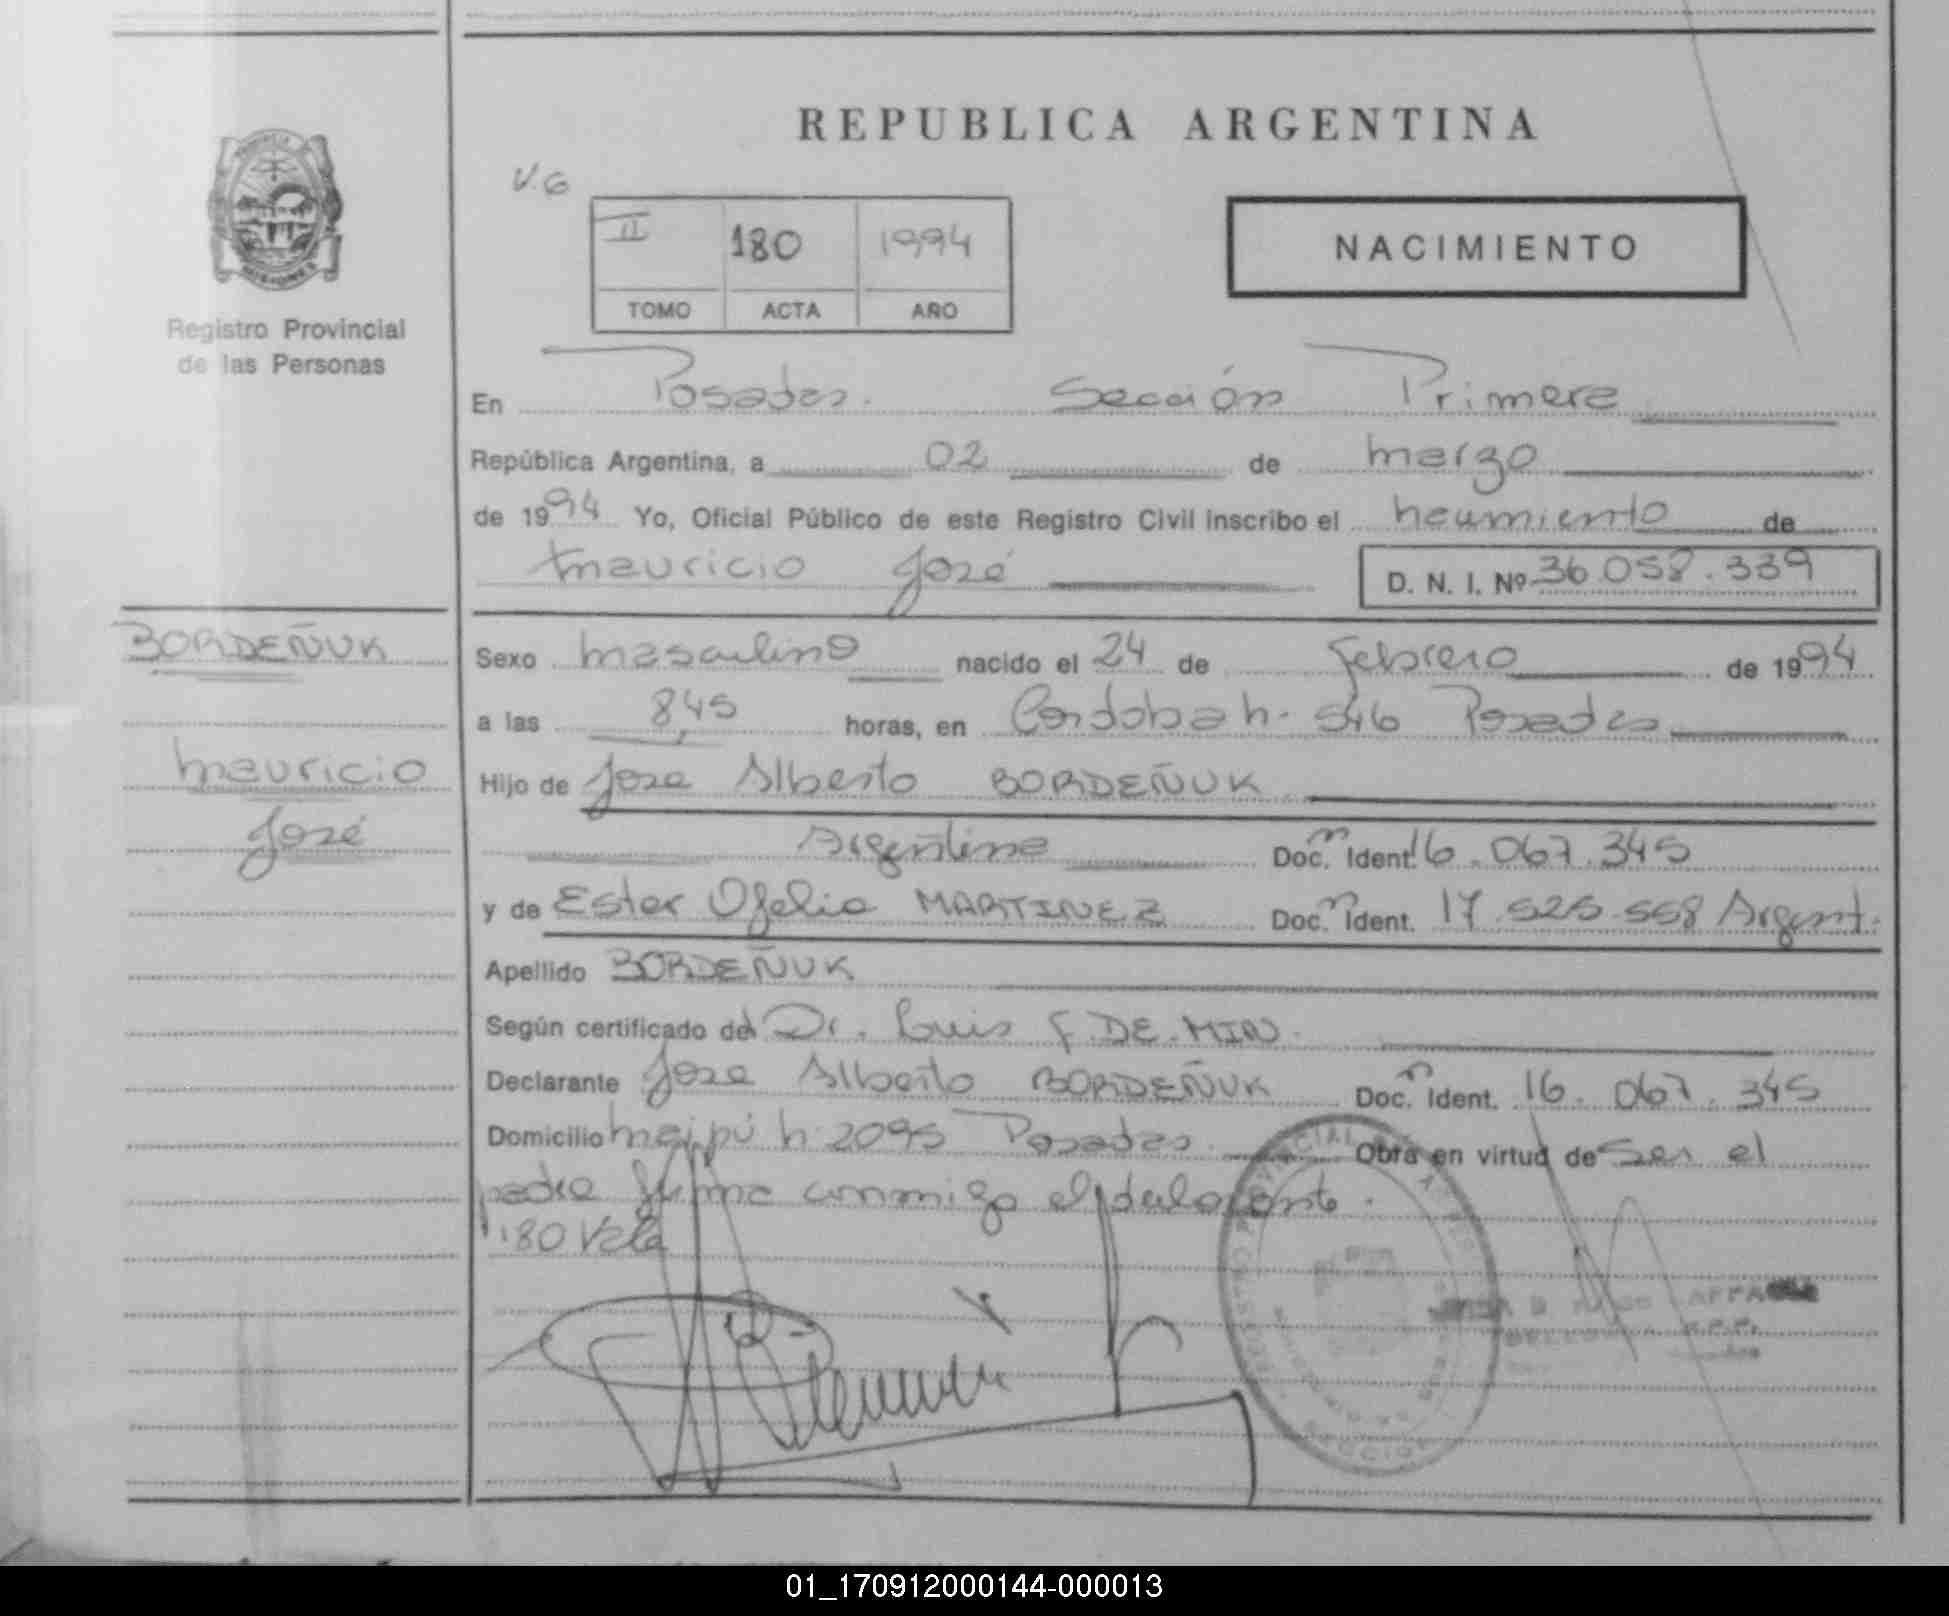 REPUBLICA ARGENTINA
V.G
II 180 1994
TOMO ACTA AÑO
NACIMIENTO
Registro Provincial
de las Personas
En Posadas. Sección Primera
República Argentina, a 02 de marzo
de 1994 Yo, Oficial Público de este Registro Civil inscribo el nacimiento de
Mauricio José D. N. I. Nº 36.058.339
BORDEÑUK
Mauricio
José
Sexo masculino nacido el 24 de Febrero de 1994
a las 8,45 horas, en Cordoba n. 546 Posadas
Hijo de Jose Alberto BORDEÑUK
Argentina Doc. Ident. 16.067.345
y de Ester Ofelia MARTINEZ Doc. Ident. 17.525.558 Argent.
Apellido BORDEÑUK
Según certificado del Dr. Luis F. DE.MIN.
Declarante Jose Alberto BORDEÑUK Doc. Ident. 16.067.345
Domicilio Maipú n. 2095 Posadas. Obra en virtud de ser el
padre firma conmigo el declarante.
180 Vale
01_170912000144-000013